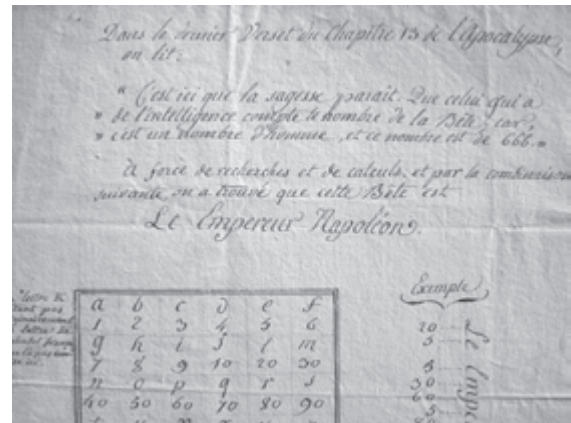 Dans le dernier Verset du Chapitre 13 de l'Apocalypse,
on lit:
" C'est ici que la sagesse parait. Que celui qui a
" de l'intelligence compte le nombre de la Bête, car,
" c'est un nombre d'homme, et ce nombre est de 666. "
A force de recherches et de calculs, et par la combinaison
suivante, on a trouvé que cette Bête est
Le Empereur Napoléon.
Exemple
a b c d e f
1 2 3 4 5 6
g h i j l m
7 8 9 10 20 30
n o p q r s
40 50 60 70 80 90
20
5
5
30
60
5
80
Le Emp